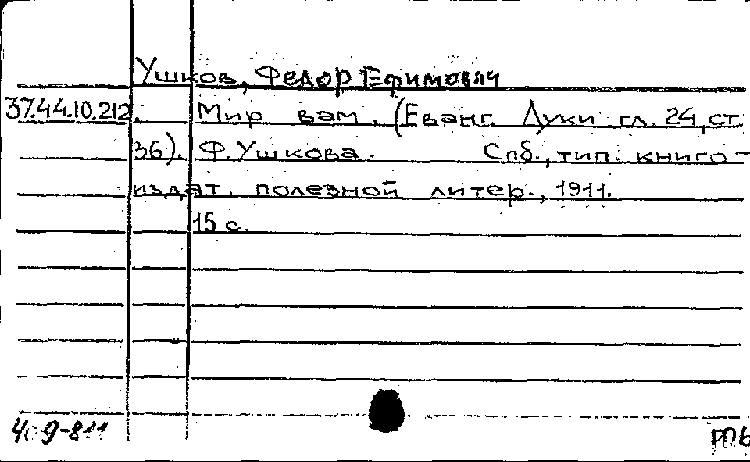 Ушков, Федор Ефимович
37.44.10.212. Мир вам. (Еванг. Луки гл. 24, ст.
36). Ф. Ушкова. Спб., тип. книго-
издат. полезной литер., 1911.
15 с.
ГПБ